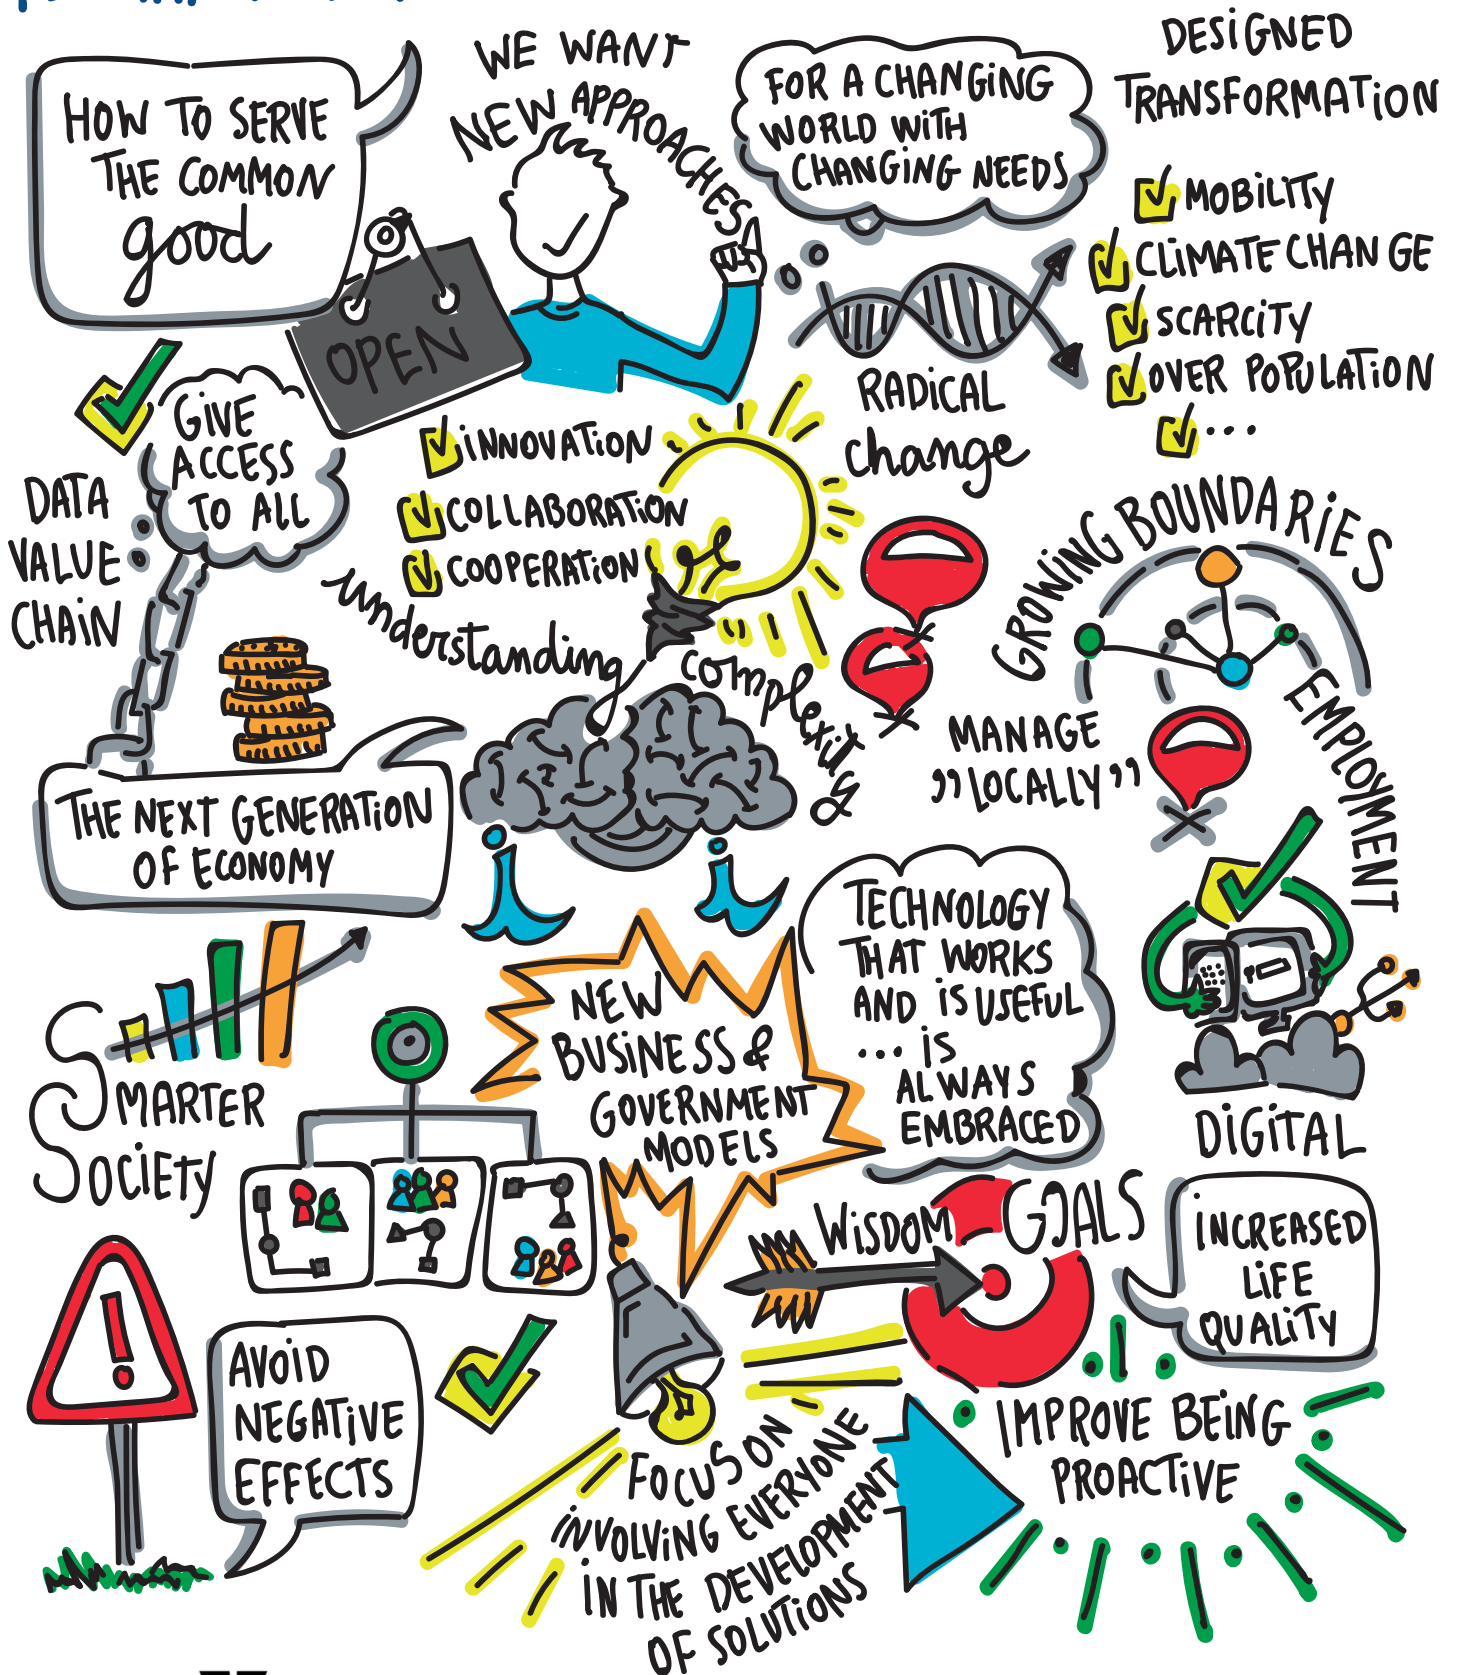 HOW TO SERVE
THE COMMON
good
WE WANT
NEW APPROACHES
FOR A CHANGING
WORLD WITH
CHANGING NEEDS
DESIGNED
TRANSFORMATION
MOBILITY
CLIMATE CHANGE
SCARCITY
OVER POPULATION
...
OPEN
RADICAL
change
GIVE
ACCESS
TO ALL
DATA
VALUE
CHAIN
INNOVATION
COLLABORATION
COOPERATION
understanding
complexity
GROWING BOUNDARIES
EMPLOYMENT
MANAGE
"LOCALLY"
THE NEXT GENERATION
OF ECONOMY
SMARTER
SOCIETY
NEW
BUSINESS &
GOVERNMENT
MODELS
TECHNOLOGY
THAT WORKS
AND IS USEFUL
... IS
ALWAYS
EMBRACED
DIGITAL
WISDOM
GOALS
INCREASED
LIFE
QUALITY
AVOID
NEGATIVE
EFFECTS
FOCUS ON
INVOLVING EVERYONE
IN THE DEVELOPMENT
OF SOLUTIONS
IMPROVE BEING
PROACTIVE